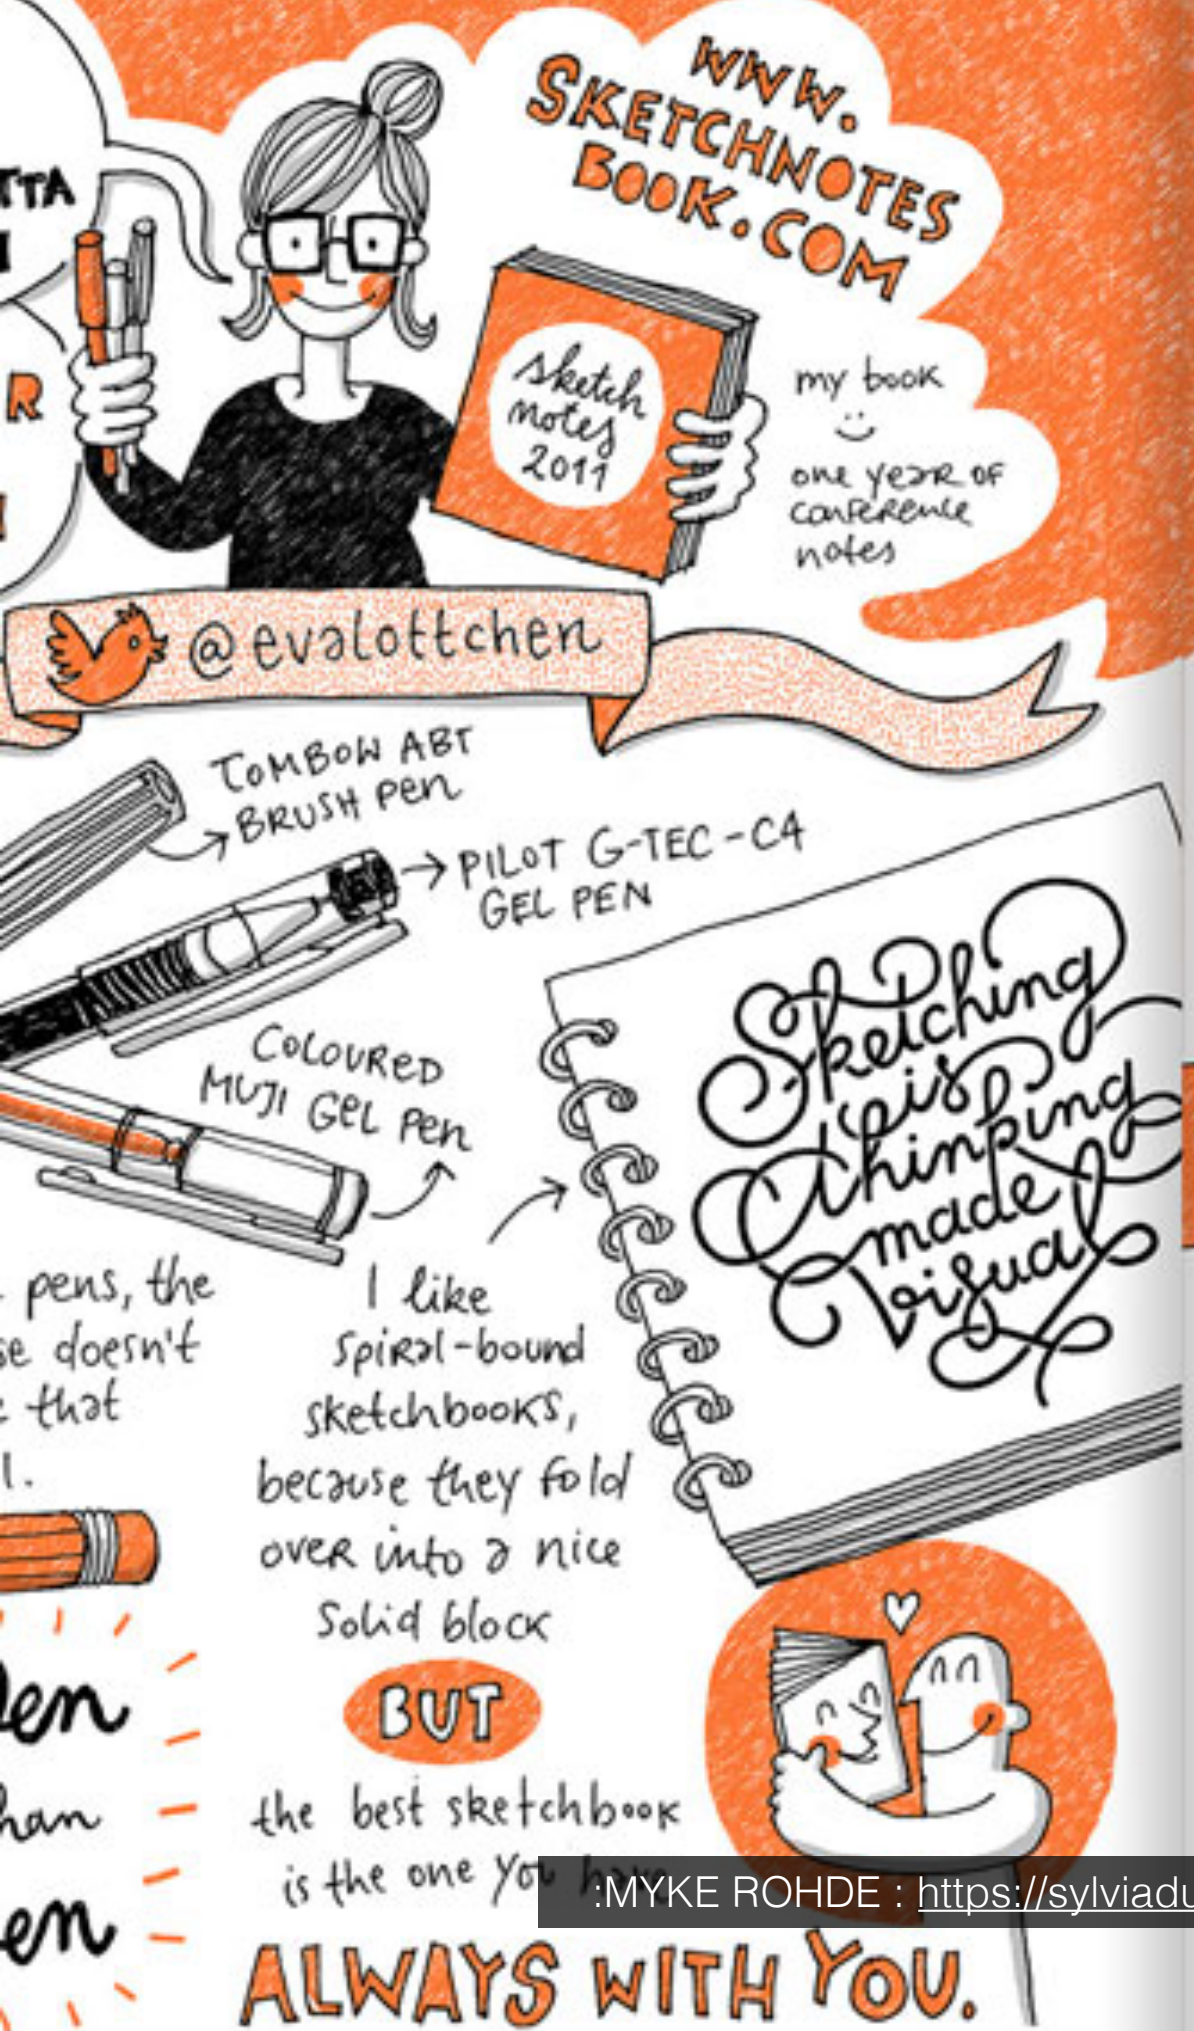 TTA
WWW.
SKETCHNOTES
BOOK.COM
R
sketch
notes
2011
my book
:)
one year of
conference
notes
@evalottchen
TOMBOW ABT
BRUSH pen
PILOT G-TEC-C4
GEL PEN
COLOURED
MUJI GEL pen
Sketching
is
thinking
made
visual
pens, the
se doesn't
that
l.
I like
spiral-bound
sketchbooks,
because they fold
over into a nice
solid block
BUT
the best sketchbook
is the one you have
ALWAYS WITH YOU.
en
han
en
:MYKE ROHDE : https://sylviadu